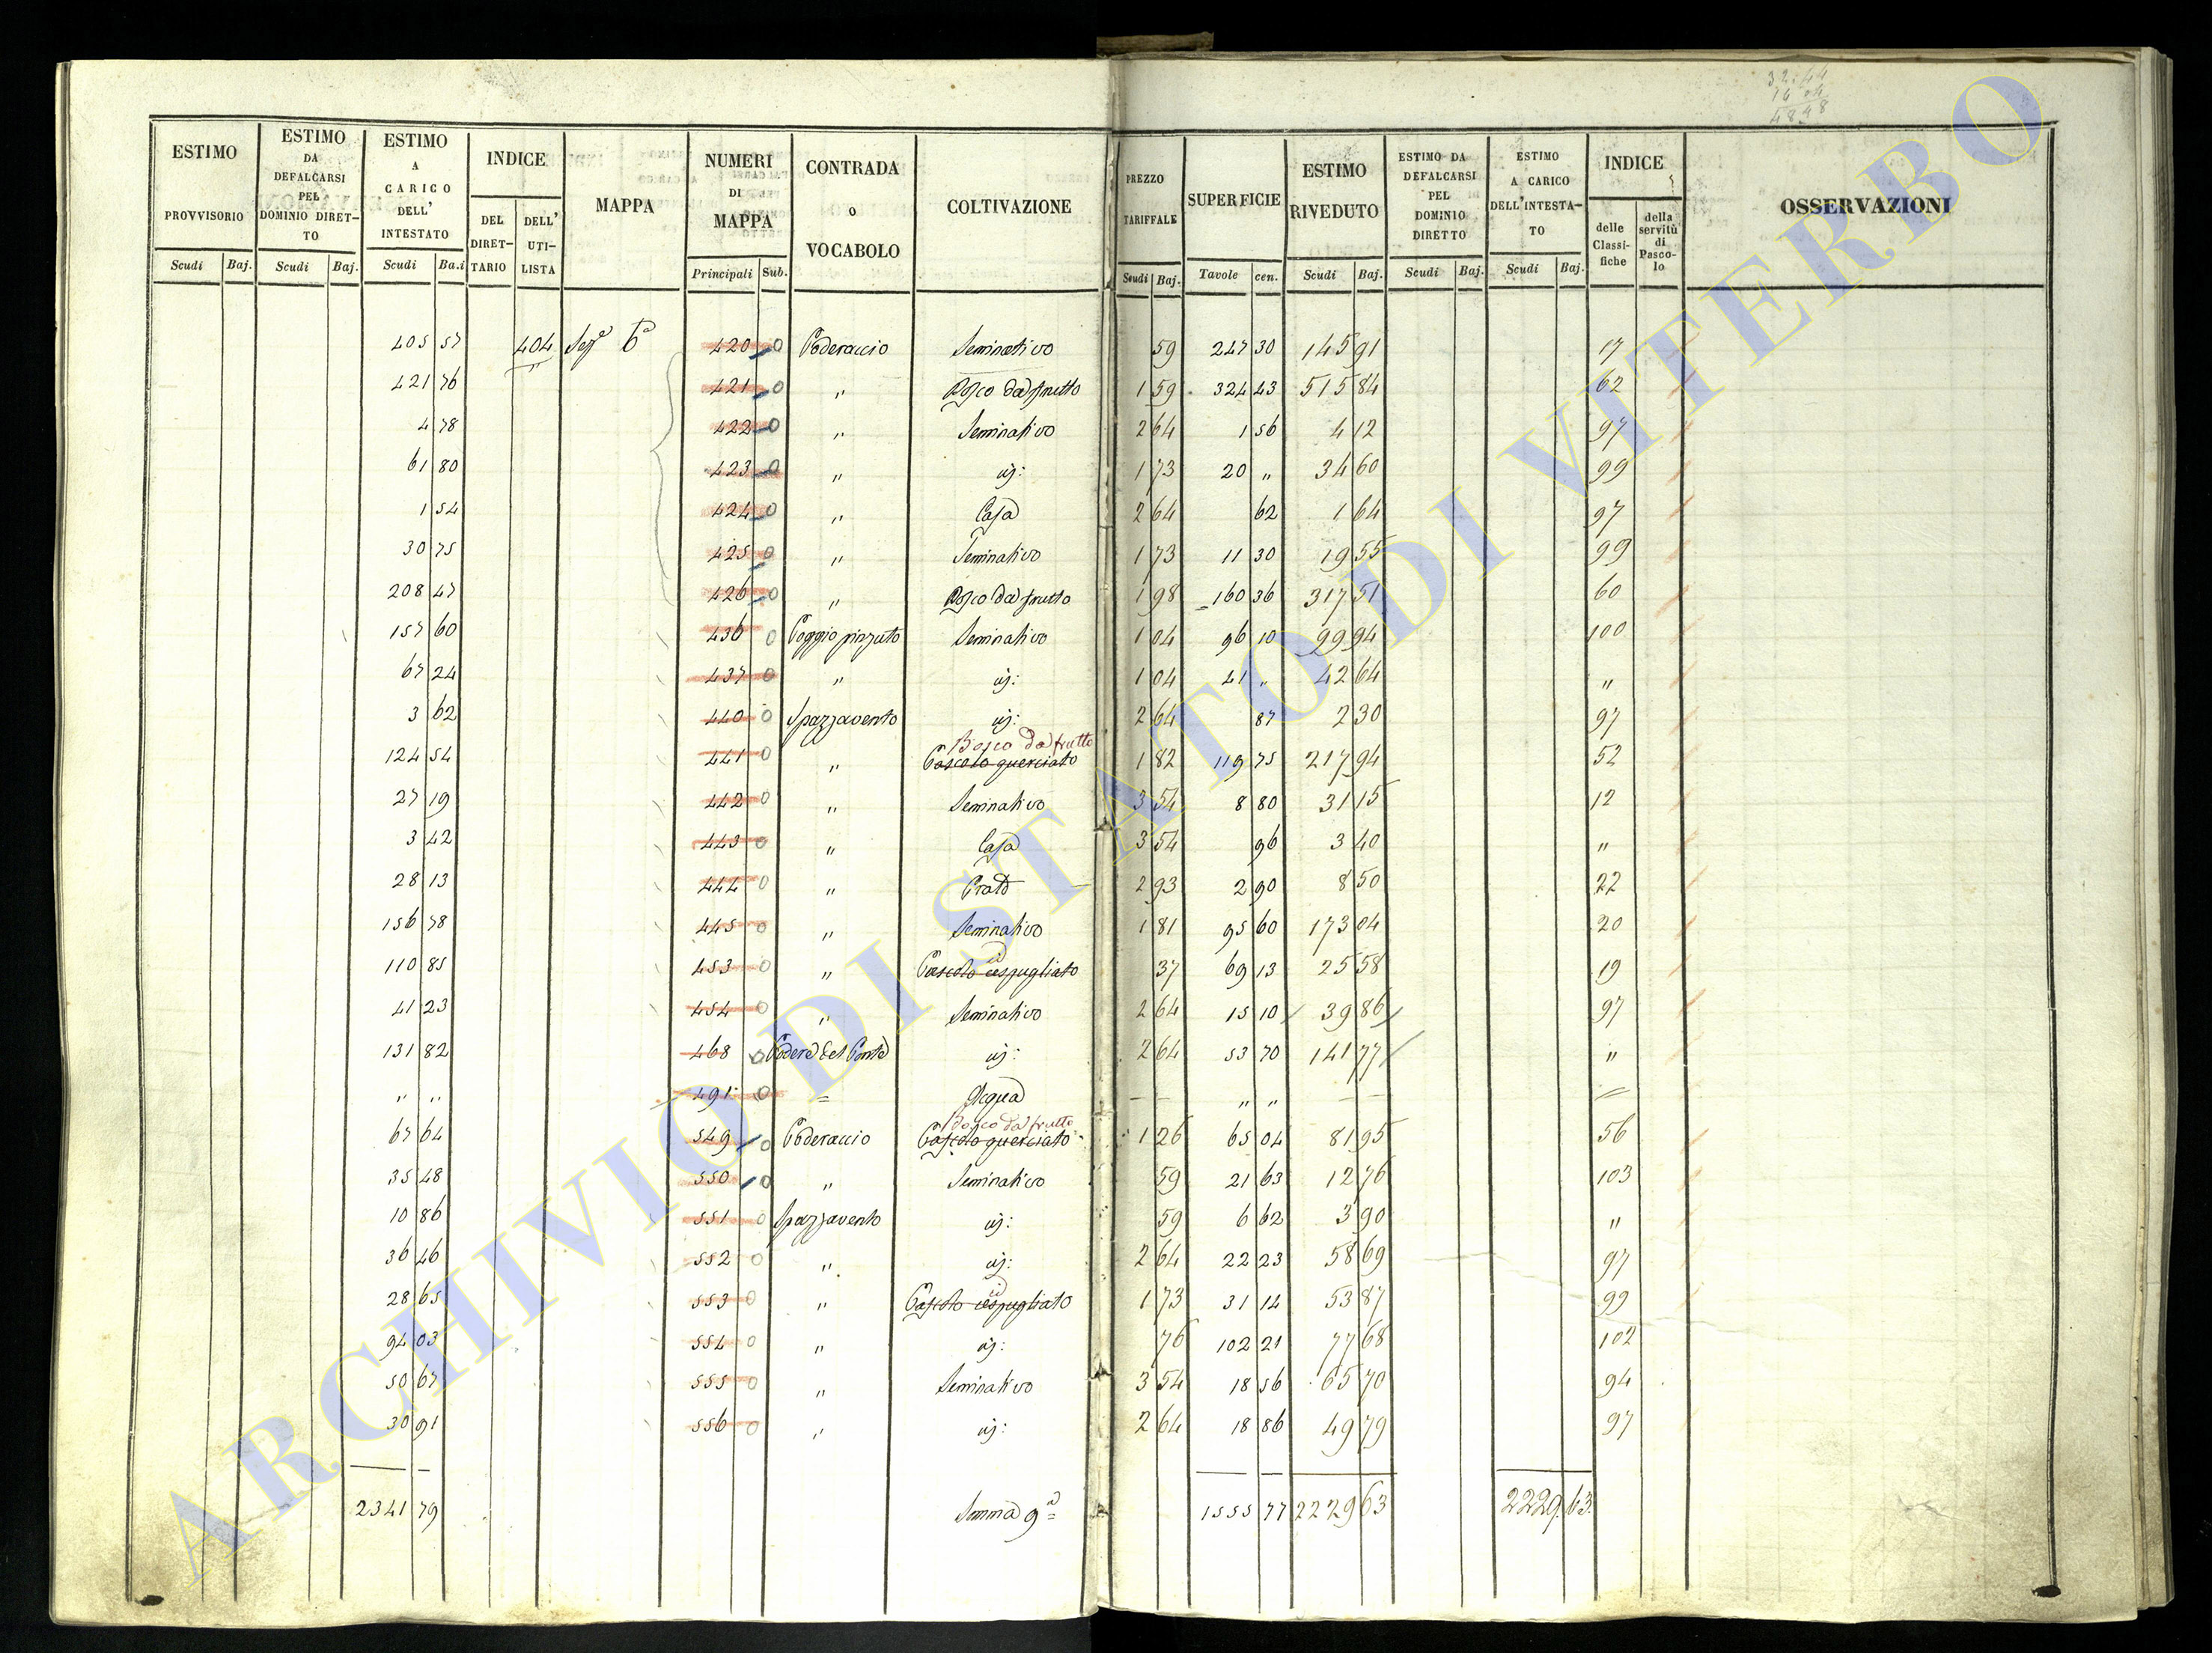 32:44
16 04
48 48
ESTIMO PROVVISORIO | ESTIMO DA DEFALCARSI PEL DOMINIO DIRETTO | ESTIMO A CARICO DELL' INTESTATO | INDICE | MAPPA | NUMERI DI MAPPA | CONTRADA O VOCABOLO | COLTIVAZIONE | PREZZO TARIFFALE | SUPERFICIE | ESTIMO RIVEDUTO | ESTIMO DA DEFALCARSI PEL DOMINIO DIRETTO | ESTIMO A CARICO DELL'INTESTATO | INDICE | OSSERVAZIONI
DEL DIRETTARIO | DELL' UTILISTA | delle Classifiche | della servitù di Pascolo
Scudi | Baj. | Scudi | Baj. | Scudi | Ba.i | Principali | Sub. | Scudi | Baj. | Tavole | cen. | Scudi | Baj. | Scudi | Baj. | Scudi | Baj.
405 57 | 404 | Sezᵉ 6ᵃ | 420 | 0 | Poderaccio | Seminativo | 59 | 247 30 | 145 91 | 17
421 76 | 421 | 0 | " | Bosco da frutto | 1 59 | 324 43 | 515 84 | 62
4 78 | 422 | 0 | " | Seminativo | 2 64 | 1 56 | 4 12 | 97
61 80 | 423 | 0 | " | id: | 1 73 | 20 " | 34 60 | 99
1 54 | 424 | 0 | " | Casa | 2 64 | 62 | 1 64 | 97
30 75 | 425 | 0 | " | Seminativo | 1 73 | 11 30 | 19 55 | 99
208 47 | 426 | 0 | " | Bosco da frutto | 1 98 | 160 36 | 317 51 | 60
157 60 | 436 | 0 | Poggio pizzuto | Seminativo | 1 04 | 96 10 | 99 94 | 100
67 24 | 437 | 0 | " | id: | 1 04 | 41 " | 42 64 | "
3 62 | 440 | 0 | Spazzavento | id: | 2 64 | 87 | 2 30 | 97
Bosco da frutto
124 54 | 441 | 0 | " | Pascolo querciato | 1 82 | 119 75 | 217 94 | 52
27 19 | 442 | 0 | " | Seminativo | 3 54 | 8 80 | 31 15 | 12
3 42 | 443 | 0 | " | Casa | 3 54 | 96 | 3 40 | "
28 13 | 444 | 0 | " | Prato | 2 93 | 2 90 | 8 50 | 22
156 78 | 445 | 0 | " | Seminativo | 1 81 | 95 60 | 173 04 | 20
110 85 | 453 | 0 | " | Pascolo cespugliato | 37 | 69 13 | 25 58 | 19
41 23 | 454 | 0 | " | Seminativo | 2 64 | 15 10 | 39 86 | 97
131 82 | 468 | 0 | Podere del Ponte | id: | 2 64 | 53 70 | 141 77 | "
" " | 491 | 0 | = | Acqua | — | " " | — — | =
Bosco da frutto
67 64 | 549 | 0 | Poderaccio | Pascolo querciato | 1 26 | 65 04 | 81 95 | 56
35 48 | 550 | 0 | " | Seminativo | 59 | 21 63 | 12 76 | 103
10 86 | 551 | 0 | Spazzavento | id: | 59 | 6 62 | 3 90 | "
36 46 | 552 | 0 | " | id: | 2 64 | 22 23 | 58 69 | 97
28 65 | 553 | 0 | " | Pascolo cespugliato | 1 73 | 31 14 | 53 87 | 99
94 03 | 554 | 0 | " | id: | 76 | 102 21 | 77 68 | 102
50 67 | 555 | 0 | " | Seminativo | 3 54 | 18 56 | 65 70 | 94
30 91 | 556 | 0 | " | id: | 2 64 | 18 86 | 49 79 | 97
2341 79 | Somma 9ᵃ | 1555 77 | 2229 63 | 2229.63.
ARCHIVIO DI STATO DI VITERBO